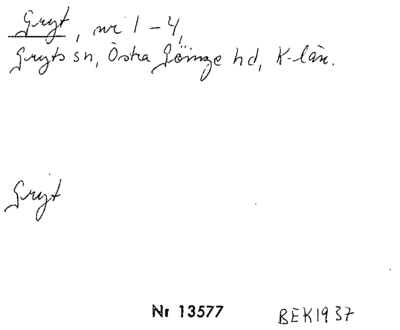 Gryt, nr 1-4,
Gryts sn, Östra Göinge hd, K-län.
Gryt
Nr 13577 BEK1937